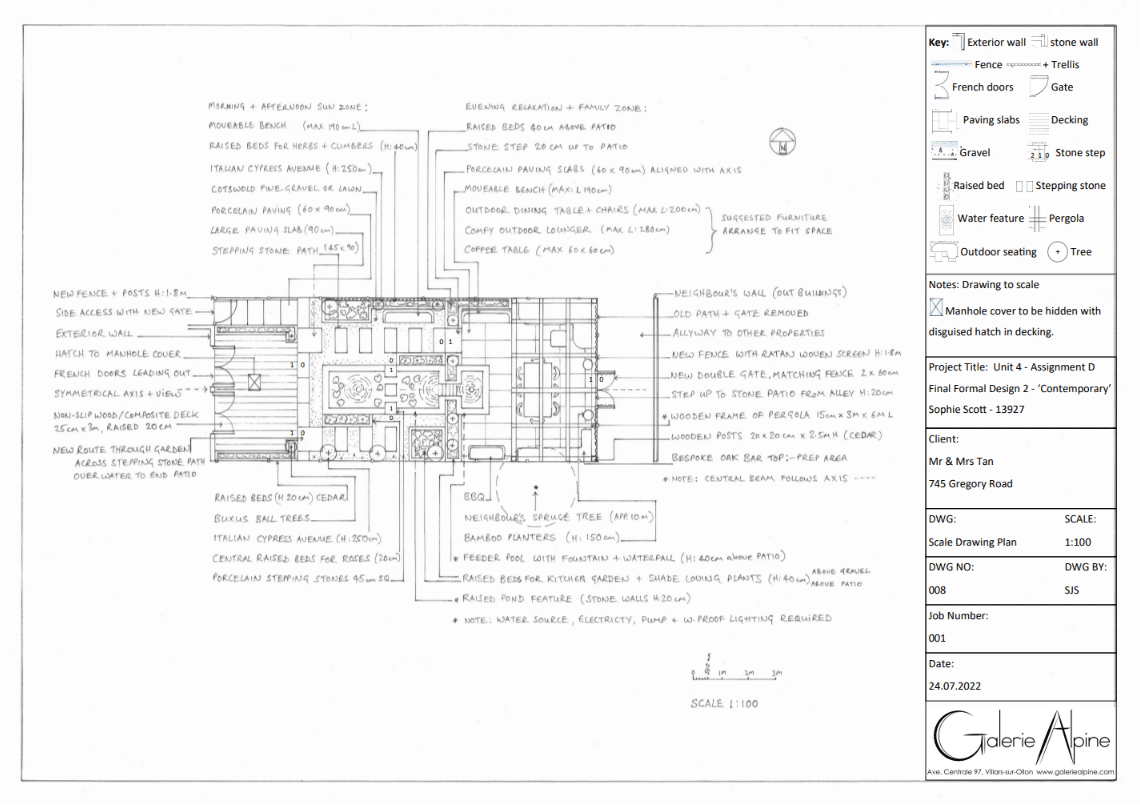 MORNING + AFTERNOON SUN ZONE:
MOVEABLE BENCH (MAX 190cm L)
RAISED BEDS FOR HERBS + CLIMBERS (H:40cm)
ITALIAN CYPRESS AVENUE (H:250cm)
COTSWOLD FINE-GRAVEL OR LAWN
PORCELAIN PAVING (60 x 90cm)
LARGE PAVING SLAB (90cm)
STEPPING STONE PATH (45 x 90)
EVENING RELAXATION + FAMILY ZONE:
RAISED BEDS 40cm ABOVE PATIO
STONE STEP 20 CM UP TO PATIO
PORCELAIN PAVING SLABS (60 x 90cm) ALIGNED WITH AXIS
MOVEABLE BENCH (MAX: L 190cm)
OUTDOOR DINING TABLE + CHAIRS (MAX L:200cm)
COMFY OUTDOOR LOUNGER (MAX L: 280cm)
COFFEE TABLE (MAX 60 x 60cm)
SUGGESTED FURNITURE
ARRANGE TO FIT SPACE
N
NEW FENCE + POSTS H:1.8M
SIDE ACCESS WITH NEW GATE
EXTERIOR WALL
HATCH TO MANHOLE COVER
FRENCH DOORS LEADING OUT
SYMMETRICAL AXIS + VIEW
NON-SLIP WOOD/COMPOSITE DECK
25cm x 3m, RAISED 20cm
NEW ROUTE THROUGH GARDEN
ACROSS STEPPING STONE PATH
OVER WATER TO END PATIO
0 1
1 0
0
1
1 0
1
0
1 0
NEIGHBOUR'S WALL (OUT BUILDINGS)
OLD PATH + GATE REMOVED
ALLYWAY TO OTHER PROPERTIES
NEW FENCE WITH RATAN WOVEN SCREEN H:1.8m
NEW DOUBLE GATE, MATCHING FENCE 2 x 60cm
STEP UP TO STONE PATIO FROM ALLEY H:20cm
* WOODEN FRAME OF PERGOLA 15cm x 3M x 6M L
WOODEN POSTS 20 x 20 cm x 2.5m H (CEDAR)
BESPOKE OAK BAR TOP:-PREP AREA
* NOTE: CENTRAL BEAM FOLLOWS AXIS ----
RAISED BEDS (H 20cm) CEDAR
BUXUS BALL TREES
ITALIAN CYPRESS AVENUE (H:250cm)
CENTRAL RAISED BEDS FOR ROSES (20cm)
PORCELAIN STEPPING STONES 45cm SQ
BBQ
NEIGHBOUR'S SPRUCE TREE (APP. 10m)
BAMBOO PLANTERS (H: 150cm)
* FEEDER POOL WITH FOUNTAIN + WATERFALL (H: 40cm above PATIO)
RAISED BEDS FOR KITCHEN GARDEN + SHADE LOVING PLANTS (H:40cm) ABOVE GRAVEL
ABOVE PATIO
* RAISED POND FEATURE (STONE WALLS H:20cm)
* NOTE: WATER SOURCE, ELECTRICTY, PUMP + W-PROOF LIGHTING REQUIRED
0 1M 2M 3M
SCALE 1:100
Key: Exterior wall stone wall
Fence + Trellis
French doors Gate
Paving slabs Decking
Gravel 2 1 0 Stone step
Raised bed Stepping stone
Water feature Pergola
Outdoor seating Tree
Notes: Drawing to scale
Manhole cover to be hidden with
disguised hatch in decking.
Project Title: Unit 4 - Assignment D
Final Formal Design 2 - ‘Contemporary’
Sophie Scott - 13927
Client:
Mr & Mrs Tan
745 Gregory Road
DWG: SCALE:
Scale Drawing Plan 1:100
DWG NO: DWG BY:
008 SJS
Job Number:
001
Date:
24.07.2022
Galerie Alpine
Ave. Centrale 97, Villars-sur-Ollon www.galeriealpine.com